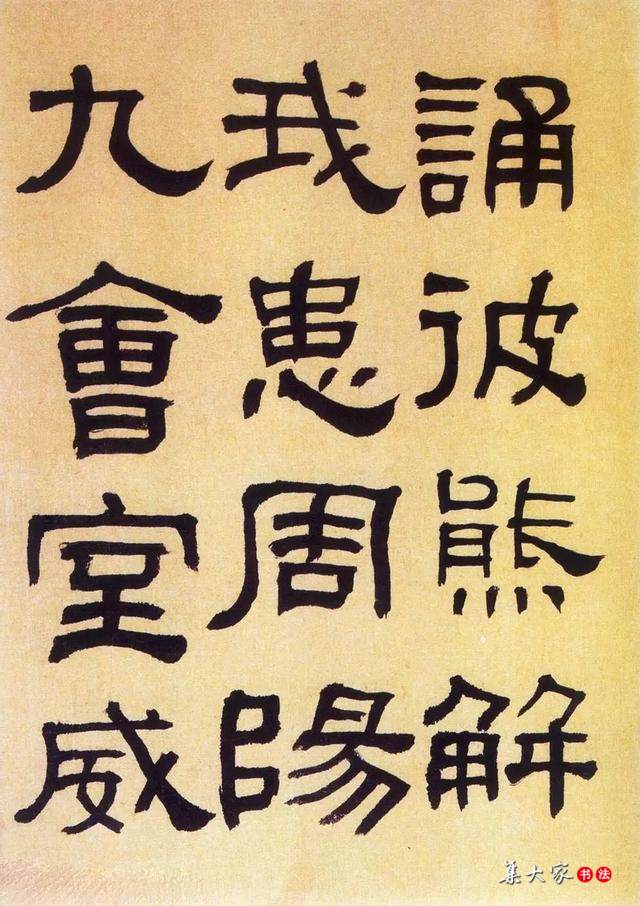 誦彼熊解
我患周陽
九會室威
集大家书法